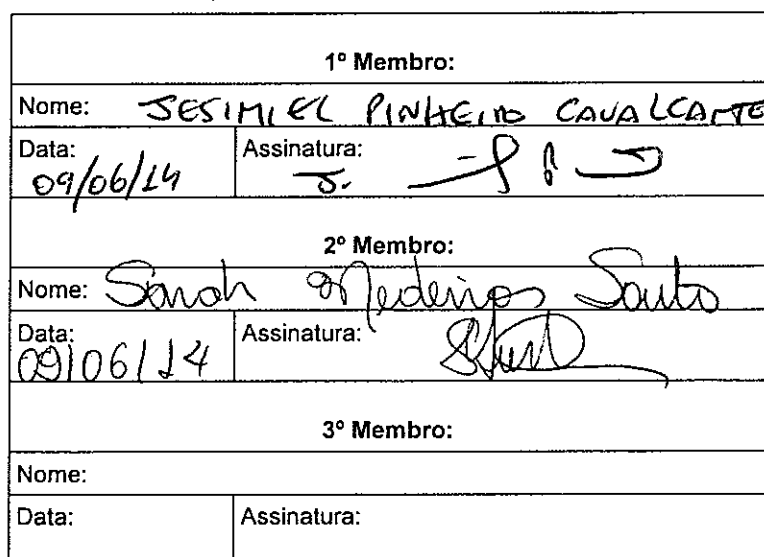 1º Membro:
Nome: JESIMIEL PINHEIRO CAVALCANTE
Data: Assinatura:
09/06/14 J.
2º Membro:
Nome: Sarah Medeiros Souto
Data: Assinatura:
09/06/14
3º Membro:
Nome:
Data: Assinatura: